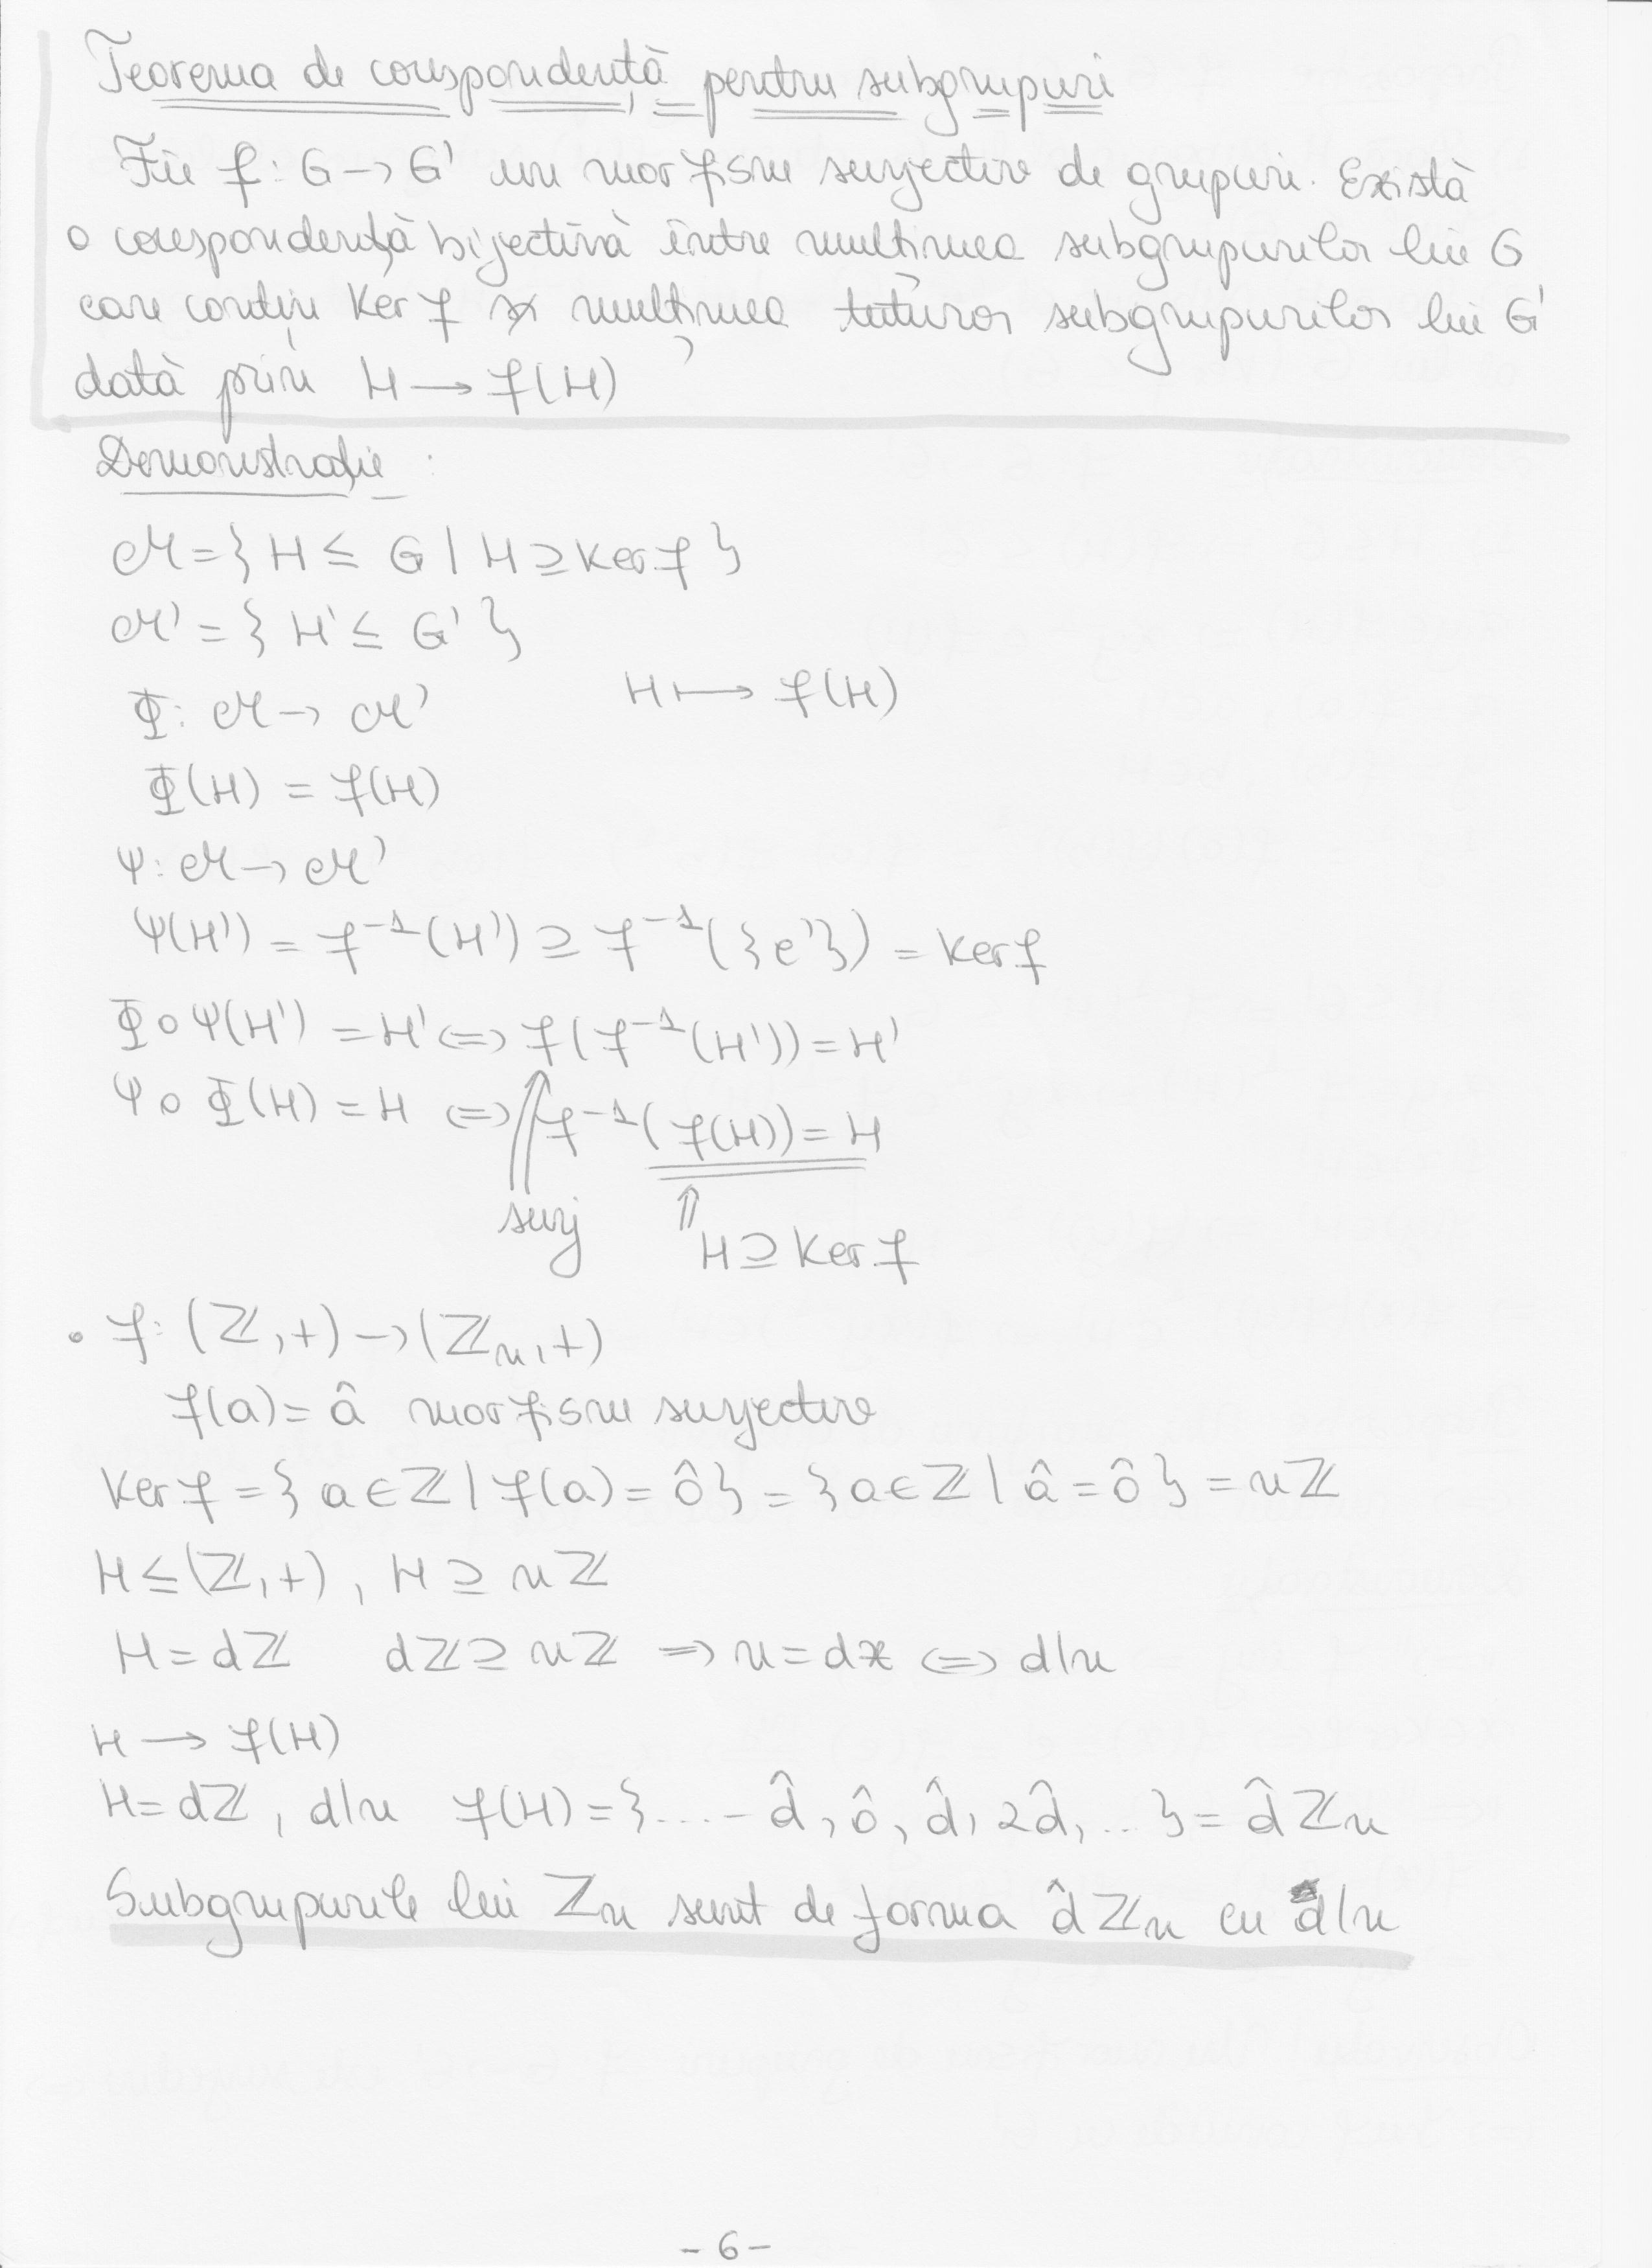 Teorema de corespondență pentru subgrupuri
Fie f: G → G' un morfism surjectiv de grupuri. Există
o corespondență bijectivă între mulțimea subgrupurilor lui G
care conțin Ker f și mulțimea tuturor subgrupurilor lui G'
dată prin H → f(H)
Demonstrație :
ℳ = { H ≤ G | H ⊇ Ker f }
ℳ' = { H' ≤ G' }
Φ: ℳ → ℳ' H ↦ f(H)
Φ(H) = f(H)
Ψ: ℳ → ℳ'
Ψ(H') = f⁻¹(H') ⊇ f⁻¹({e'}) = Ker f
Φ∘Ψ(H') = H' ⇔ f(f⁻¹(H')) = H'
Ψ∘Φ(H) = H ⇔ f⁻¹(f(H)) = H
surj ⇑
H ⊇ Ker f
• f: (ℤ,+) → (ℤₙ,+)
f(a) = â morfism surjectiv
Ker f = { a ∈ ℤ | f(a) = 0̂ } = { a ∈ ℤ | â = 0̂ } = nℤ
H ≤ (ℤ,+), H ⊇ nℤ
H = dℤ dℤ ⊇ nℤ ⇒ n = dx ⇔ d|n
H → f(H)
H = dℤ, d|n f(H) = {... -d̂, 0̂, d̂, 2d̂, ...} = d̂ℤₙ
Subgrupurile lui ℤₙ sunt de forma d̂ℤₙ cu d|n
- 6 -